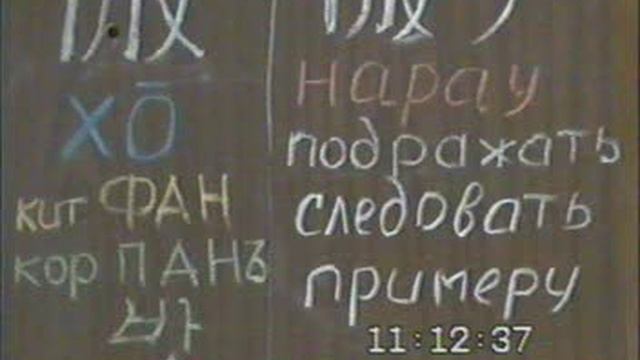 ХŌ
кит ФАН
кор ПАНЪ
нарау
подражать
следовать
примеру
11:12:37